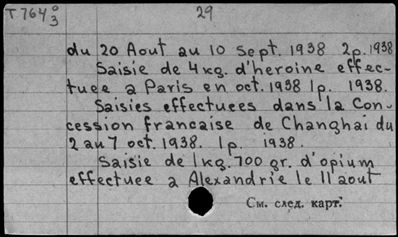 T 764 0/3
29
du 20 Aout au 10 Sept. 1938 2p. 1938
Saisie de 4 kg. d'heroine effec-
tuee a Paris en oct. 1938 1p. 1938.
Saisies effectuees dans la Con-
cession francaise de Changhai du
2 au 7 oct. 1938. 1p. 1938.
Saisie de 1 kg. 700 gr. d'opium
effectuee a Alexandrie le 11 aout
См. след. карт.